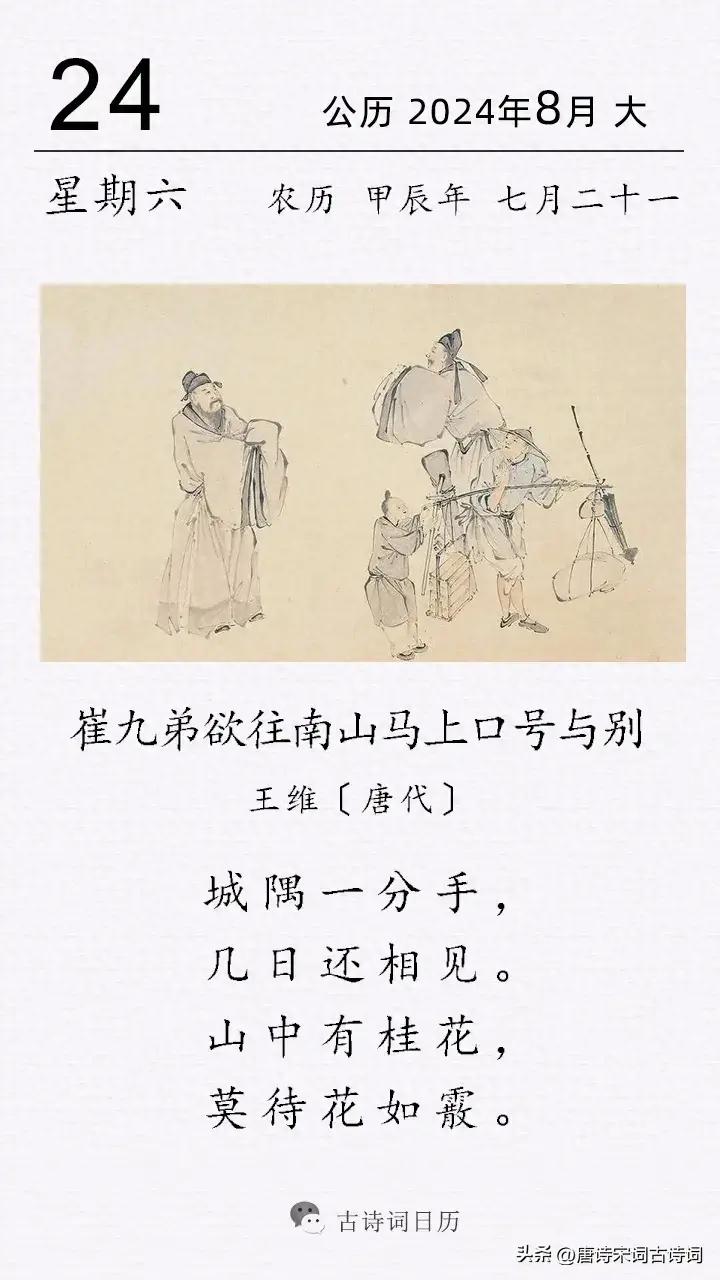 24
公历 2024年8月 大
星期六 农历 甲辰年 七月二十一
崔九弟欲往南山马上口号与别
王维〔唐代〕
城隅一分手，
几日还相见。
山中有桂花，
莫待花如霰。
古诗词日历
头条 @唐诗宋词古诗词